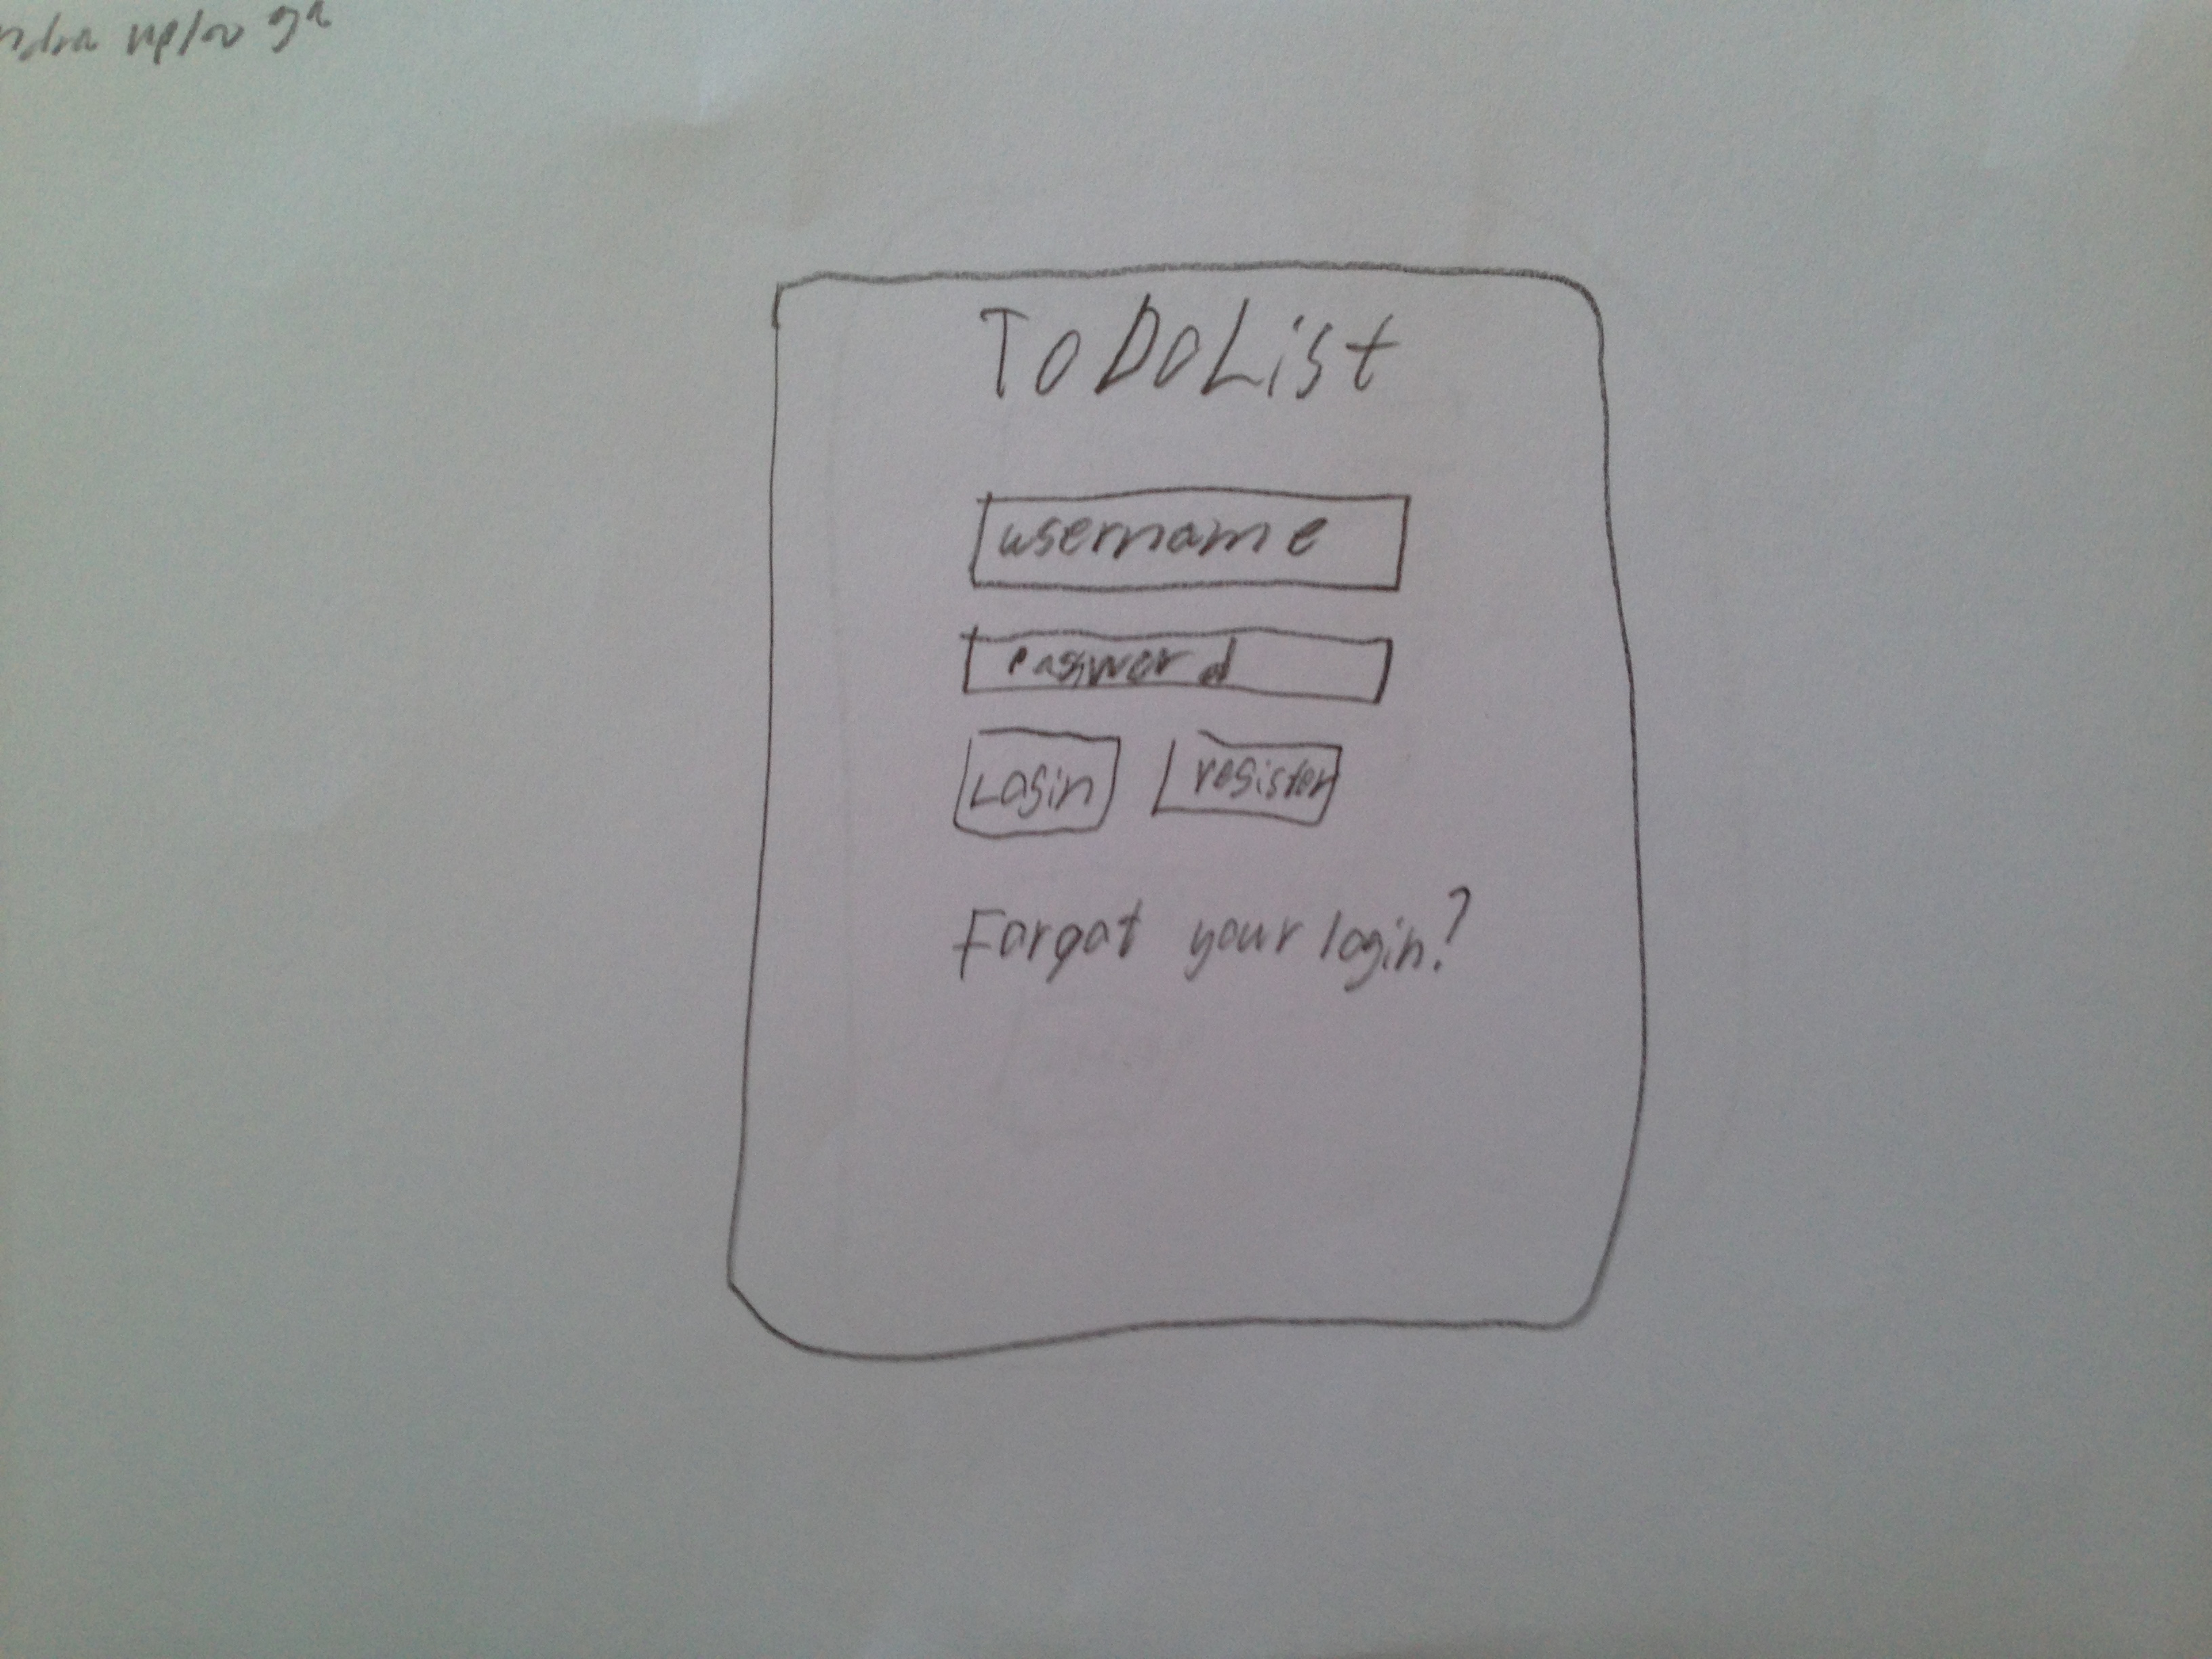 To Do List
username
password
Login register
Forgot your login?